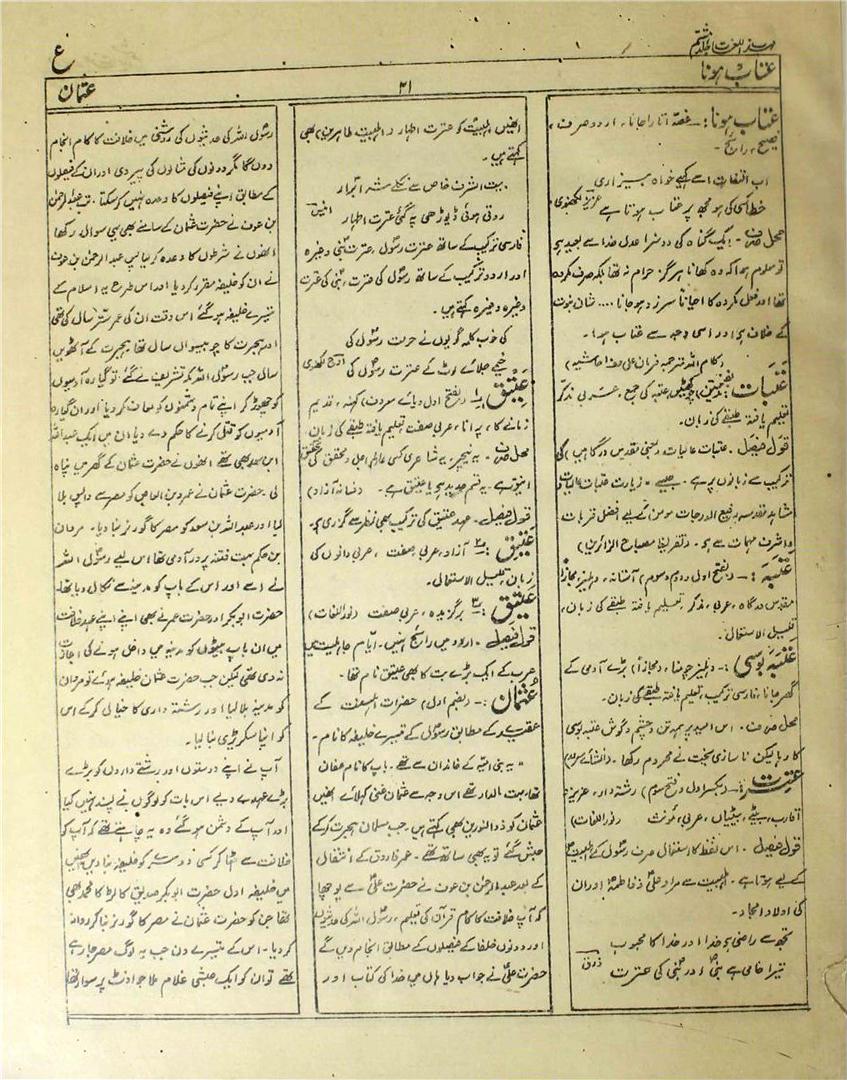 مہذب اللغات جلد ہشتم
ع
عتاب ہونا
۲۱
عثمان
عتاب ہونا :۔ غصہ اتارا جانا ۔ اردو صرف ،
فصیح ، رائج ۔
اب التفات اسے کہیے خواہ بیزاری
خط کسی کی ہو مجھ پر عتاب ہوتا ہے عزیز لکھنوی
محل صرف ۔ ایک گناہ کی دو سزا عدل خدا سے بعید ہے
تو معلوم ہوا کہ وہ کھانا ہرگز حرام نہ تھا بلکہ صرف مکروہ
تھا اور فعل مکروہ کا احیاناً سرزد ہو جانا .... شان نبوت
کے خلاف ہے اور اسی وجہ سے عتاب ہوا ۔
(کلام اللہ مترجمہ فرمان علی حاشیہ)
عتبات : بفتحتین عتبہ کی جمع ، عربی مذکر
تعلیم یافتہ طبقے کی زبان ۔
قول فیصل ۔ عتبات عالیات (یعنی مقدس درگاہیں) کی
ترکیب سے زبانوں پر ہے ۔ جیسے ۔ زیارت عتبات عالیات
مشاہد مقدسہ رفیع الدرجات مومن کے لیے افضل قربات
و اشرف مہمات سے ہے ۔ (تقریظ مصباح الزائرین)
عتبہ :۔ (بفتح اول و دوم و سوم) آستانہ ، دہلیز مجازاً
مقدس درگاہ ، عربی ، مذکر ، تعلیم یافتہ طبقے کی زبان ،
قلیل الاستعمال ۔
عتبہ بوسی :۔ دہلیز چومنا ، (مجازاً) بڑے آدمی کے
گھر جانا ، فارسی ترکیب ، تعلیم یافتہ طبقے کی زبان ۔
محل صرف ۔ اس امید پر ہمہ تن چشم و گوش عتبہ بوسی
کا رہا لیکن ناسازی بخت نے محروم رکھا ۔ (انشائے سرور)
عترت :۔ (بکسر اول و فتح سوم) رشتہ دار ، عزیز
اقارب ، بیٹے ، بیٹیاں ، عربی ، مونث (نور اللغات)
قول فیصل ۔ اس لفظ کا استعمال صرف رسول کے اہلبیت
کے لیے ہوتا ہے ۔ اہلبیت سے مراد علی و فاطمہ اور ان
کی اولاد امجاد ۔
تجھ سے راضی ہے خدا اور خدا کا محبوب
تیرا حامی ہے نبی اور نبی کی عترت ذوق
انھیں اہلبیت کو عترت اطہار و اہلبیت طاہرین بھی
کہتے ہیں ۔
بیت الشرف خاص سے نکلے شہ ابرار
روتی ہوئی ڈیوڑھی پہ گئی عترت اطہار انیس
فارسی ترکیب کے ساتھ عترت رسول ، عترت نبی وغیرہ
اور اردو ترکیب کے ساتھ رسول کی عترت ، نبی کی عترت
وغیرہ وغیرہ کہتے ہیں ۔
کی خوب کلمہ گویوں نے حرمت رسول کی
خیمے جلائے لوٹ کے عترت رسول کی اوج لکھنوی
عتیق :۱ (بفتح اول و یائے معروف) کہنہ ، قدیم
زمانے کا ، پرانا ، عربی صفت تعلیم یافتہ طبقے کی زبان
محل صرف ۔ یہ نیچریہ شاعری کسی عالم اجل و محقق کی
انیق ہے ۔ یہ قسم جدید ہے یا عتیق ہے ۔ (فسانہ آزاد)
قول فیصل ۔ عہد عتیق کی ترکیب بھی نظر سے گزری ہے ۔
عتیق :۲ آزاد ، عربی صفت ، عربی دانوں کی
زبان ، قلیل الاستعمال ۔
عتیق :۳ برگزیدہ ، عربی صفت (نور اللغات)
قول فیصل ۔ اردو میں رائج نہیں ۔ ایام جاہلیت میں
عرب کے ایک بڑے بت کا بھی عتیق نام تھا ۔
عثمان :۔ (بضم اول) حضرات اہلسنت کے
عقیدے کے مطابق رسول کے تیسرے خلیفہ کا نام ۔
" یہ بنی امیہ کے خاندان سے تھے ۔ باپ کا نام عفان
تھا ، بہت مالدار تھے اس وجہ سے عثمان غنی کہلائے انھیں
عثمان کو ذوالنورین بھی کہتے ہیں ۔ جب مسلمان ہجرت کرکے
حبش گئے تو یہ بھی ساتھ تھے ۔ عمر فاروق کے انتقال
کے بعد عبدالرحمن بن عوف نے حضرت علی سے پوچھا
کہ آپ خلافت کا کام قرآن کی تعلیم ، رسول اللہ کی حدیثوں
اور دونوں خلفا کے فیصلوں کے مطابق انجام دیں گے
حضرت علی نے جواب دیا ہاں میں خدا کی کتاب اور
رسول اللہ کی حدیثوں کی روشنی میں خلافت کا کام انجام
دوں گا مگر دونوں کی مثالوں کی پیروی اور ان کے فیصلوں
کے مطابق اپنے فیصلوں کا وعدہ نہیں کر سکتا ۔ تب عبدالرحمن
بن عوف نے حضرت عثمان کے سامنے بھی یہی سوال رکھا
انھوں نے شرطوں کا وعدہ کر لیا پس عبدالرحمن بن عوف
نے ان کو خلیفہ مقرر کر دیا اور اس طرح یہ اسلام کے
تیسرے خلیفہ ہو گئے اس وقت ان کی عمر ستر سال کی تھی
اور ہجرت کا چوبیسواں سال تھا ہجرت کے آٹھویں
سال جب رسول اللہ مکہ تشریف لے گئے ، تو گیارہ آدمیوں
کو چھوڑ کر اپنے تمام دشمنوں کو معاف کر دیا اور ان گیارہ
آدمیوں کو قتل کرنے کا حکم دے دیا ان میں ایک عبداللہ
ابن سعد بھی تھے انھوں نے حضرت عثمان کے گھر میں پناہ
لی ۔ حضرت عثمان نے عمرو بن العاص کو مصر سے واپس بلا
لیا اور عبداللہ بن سعد کو مصر کا گورنر بنا دیا ۔ مروان
بن حکم بہت فتنہ پرور آدمی تھا اس لیے رسول اللہ
نے اسے اور اس کے باپ کو مدینہ سے نکال دیا تھا ۔
حضرت ابوبکر اور حضرت عمر نے بھی اپنے اپنے عہد خلافت
میں ان باپ بیٹوں کو مدینہ میں داخل ہونے کی اجازت
نہ دی تھی لیکن جب حضرت عثمان خلیفہ ہوئے تو مروان
کو مدینہ بلا لیا اور رشتہ داری کا خیال کرکے اس
کو اپنا سکرٹری بنا لیا ۔
آپ نے اپنے دوستوں اور رشتے داروں کو بڑے
بڑے عہدے دیے اس بات کو لوگوں نے پسند نہیں کیا
اور آپ کے دشمن ہو گئے وہ یہ چاہتے تھے کہ آپ کو
خلافت سے ہٹا کر کسی دوسرے کو خلیفہ بنا دیں انھیں
میں خلیفہ اول حضرت ابوبکر صدیق کا لڑکا محمد بھی
تھا جن کو حضرت عثمان نے مصر کا گورنر بنا کر روانہ
کر دیا ۔ اس کے تیسرے دن جب یہ لوگ مصر جا رہے
تھے تو ان کو ایک حبشی غلام ملا جو اونٹ پر سوار تھا